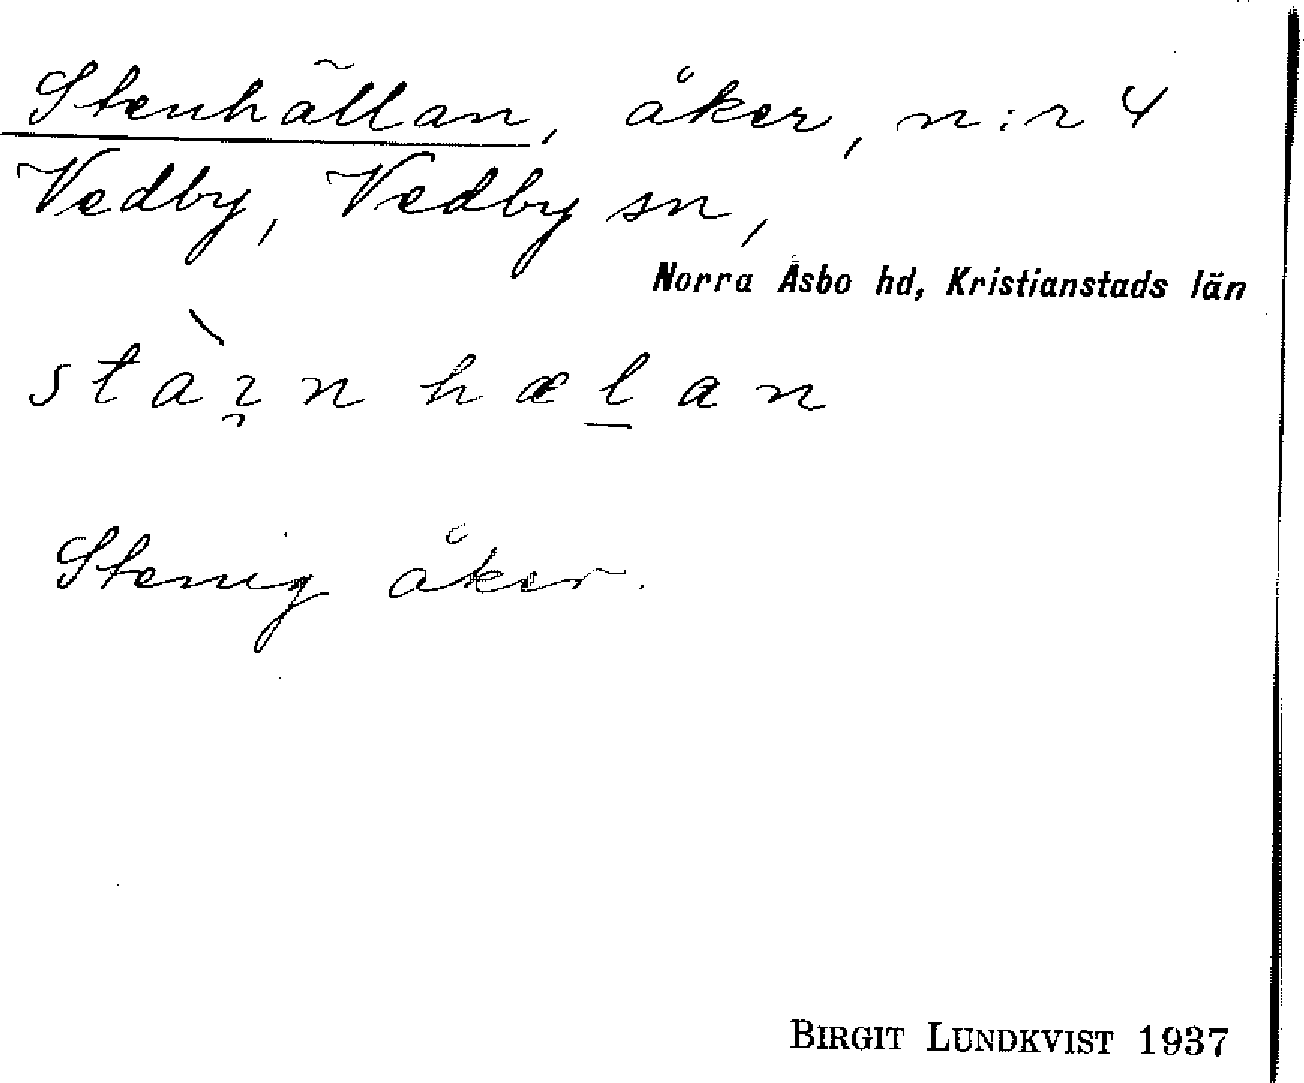 Stenhällan, åker, n:r 4
Vedby, Vedby sn,
Norra Åsbo hd, Kristianstads län
stàı̯n hæl̲an
Stenig åker.
BIRGIT LUNDKVIST 1937